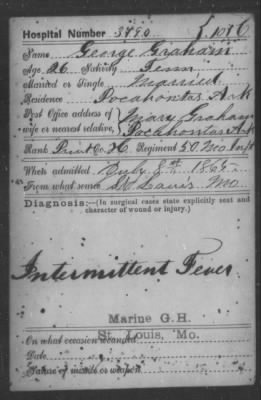 Hospital Number 3790 [1076]
Name George Graham
Age 26 Nativity Tenn
Married or Single Married
Residence Pocahontas Ark
Post Office address of
wife or nearest relative, Mary Graham
Pocahontas Ark
Rank Privt Co. H Regiment 50 Mo Inft
When admitted July 8th 1865
From what source St Louis Mo
Diagnosis:—(In surgical cases state explicitly seat and
character of wound or injury.)
Intermittent Fever
Marine G.H.
St. Louis, Mo.
On what occasion wounded
Date
Nature of missile or weapon